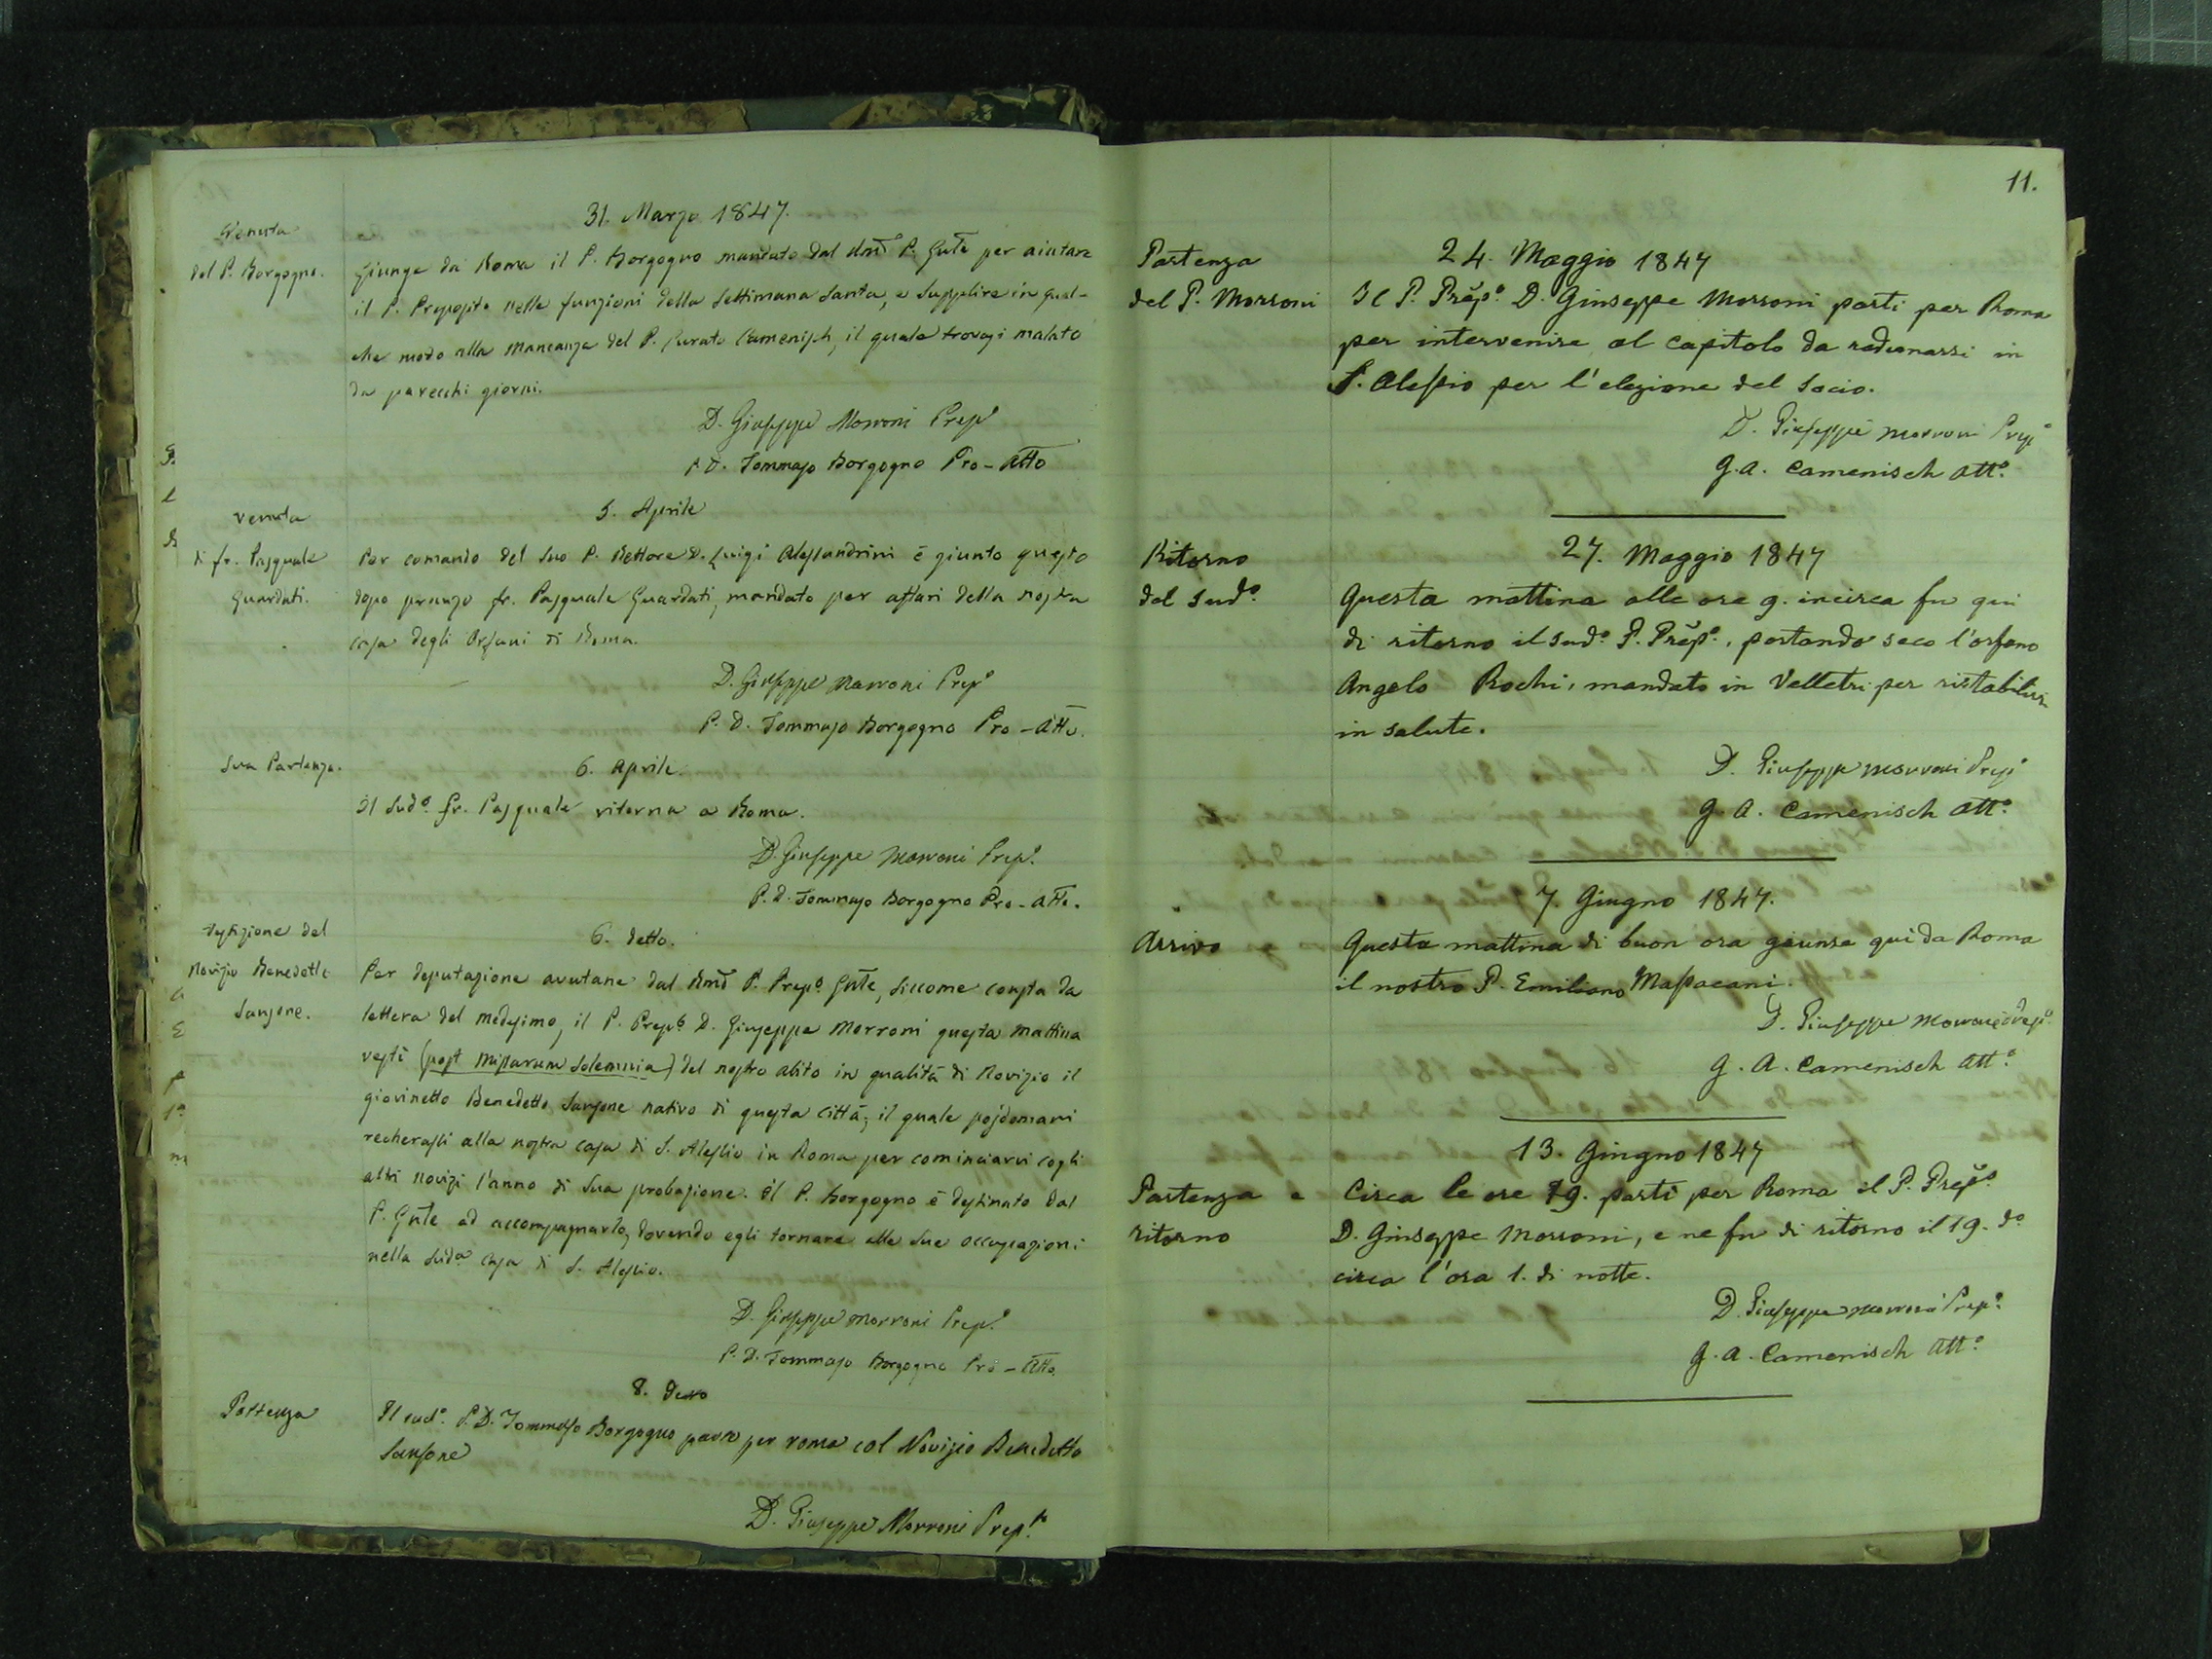 31. Marzo 1847.
Venuta
del P. Borgogno.
Giunge da Roma il P. Borgogno mandato dal Rmõ P. Gnlē per aiutare
il P. Preposito nelle funzioni della Settimana Santa, e supplire in qual-
che modo alla mancanza del P. Curato Camenisch, il quale trovasi malato
da parecchi giorni.
D. Giuseppe Morroni Prepº
P. D. Tommaso Borgogno Pro-Atto
5. Aprile
Venuta
di fr. Pasquale
Guardati.
Per comando del suo P. Rettore D. Luigi Alessandrini è giunto questo
dopo pranzo fr. Pasquale Guardati, mandato per affari della nostra
casa degli Orfani di Roma.
D. Giuseppe Morroni Prepº
P. D. Tommaso Borgogno Pro-Atto.
Sua Partenza.
6. Aprile.
Il Sudº fr. Pasquale ritorna a Roma.
D. Giuseppe Morroni Prepº.
P. D. Tommaso Borgogno Pro-Atto.
6. detto.
Vestizione del
Novizio Benedetto
Sansone.
Per deputazione avutane dal Rmõ P. Prepº Gnlē, siccome consta da
lettera del medesimo, il P. Prepº D. Giuseppe Morroni questa mattina
vestì (post Missarum Solemnia) del nostro abito in qualità di Novizio il
giovinetto Benedetto Sansone nativo di questa città, il quale posdomani
recherassi alla nostra casa di S. Alessio in Roma per cominciarvi cogli
altri novizi l'anno di sua probazione. Il P. Borgogno è destinato dal
P. Gnlē ad accompagnarlo, dovendo egli tornare alle sue occupazioni
nella sudª casa di S. Alessio.
D. Giuseppe Morroni Prepº.
P. D. Tommaso Borgogno Pro-Atto.
8. detto
Partenza
Il sudº. P. D. Tommaso Borgogno parte per roma col Novizio Benedetto
Sansone
D. Giuseppe Morroni Prepº.
11.
24. Maggio 1847
Partenza
del P. Morroni
Il P. Prepº. D. Giuseppe Morroni partì per Roma
per intervenire al capitolo da radunarsi in
S. Alessio per l'elezione del Socio.
D. Giuseppe Morroni Prepº
G. A. Camenisch Attº.
27. Maggio 1847
Ritorno
del Sudº.
Questa mattina alle ore 9. incirca fu qui
di ritorno il Sudº. P. Prepº., portando seco l'orfano
Angelo Rochi, mandato in Velletri per ristabilirsi
in salute.
D. Giuseppe Morroni Prepº
G. A. Camenisch Attº.
7. Giugno 1847.
Arrivo
Questa mattina di buon ora giunse qui da Roma
il nostro P. Emiliano Massacani.
D. Giuseppe Morroni Prepº.
G. A. Camenisch Attº.
13. Giugno 1847
Partenza e
ritorno
Circa le ore 19. partì per Roma il P. Prepº.
D. Giuseppe Morroni, e ne fu di ritorno il 19. dº
circa l'ora 1. di notte.
D. Giuseppe Morroni Prepº.
G. A. Camenisch Attº.